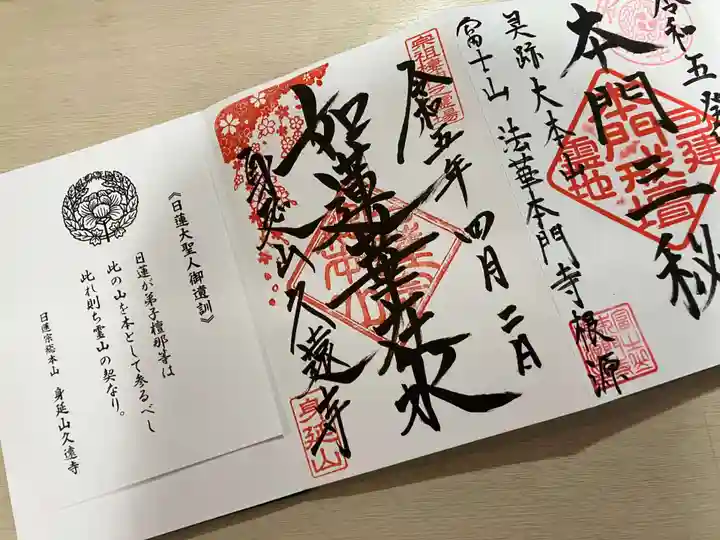 令和五癸
本門三秘
霊跡 大本山
富士山 法華本門寺根源
霊地
令和五年四月二日
如蓮華在水
身延山久遠寺
身延山
《日蓮大聖人御遺訓》
日蓮が弟子檀那等は
此の山を本として参るべし
此れ則ち霊山の契なり。
日蓮宗総本山 身延山久遠寺